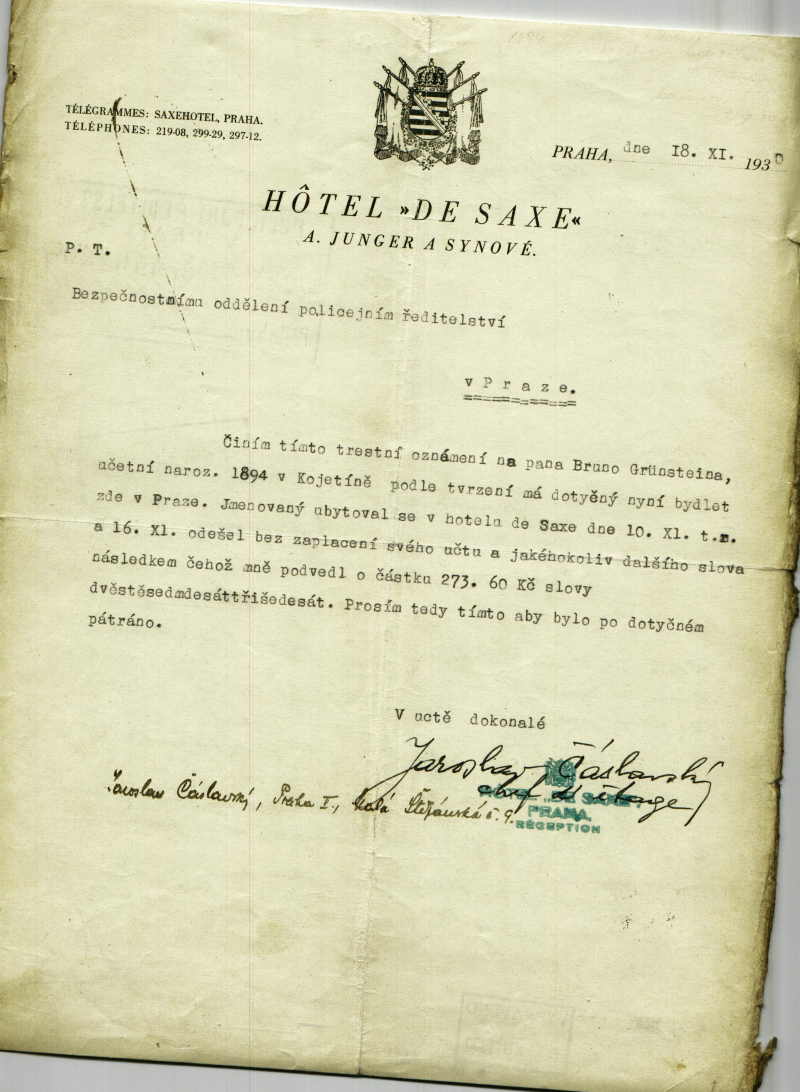 TÉLÉGRAMMES: SAXEHOTEL, PRAHA.
TÉLÉPHONES: 219-08, 299-29, 297-12.
PRAHA, dne 18. XI. 1930
HÔTEL »DE SAXE«
A. JUNGER A SYNOVÉ.
P. T.
Bezpečnostnímu oddělení policejním ředitelství
v Praze.
Činím tímto trestní oznámení na pana Bruno Grünsteina,
učetní naroz. 1894 v Kojetíně podle tvrzení má dotyěný nyní bydlet
zde v Praze. Jmenovaný ubytoval se v hotelu de Saxe dne 10. XI. t.r.
a 16. XI. odešel bez zaplacení svého učtu a jakéhokoliv dalšího slova
následkem čehož mně podvedl o částku 273. 60 Kč slovy
dvěstěsedmdesáttřišedesát. Prosím tedy tímto aby bylo po dotyčném
pátráno.
V uctě dokonalé
Jaroslav Čáslavský
chef d'étage
"DE SAXE"
PRAHA,
RÉCEPTION
Jaroslav Čáslavský, Praha I., Malá Štěpánská č. 9.